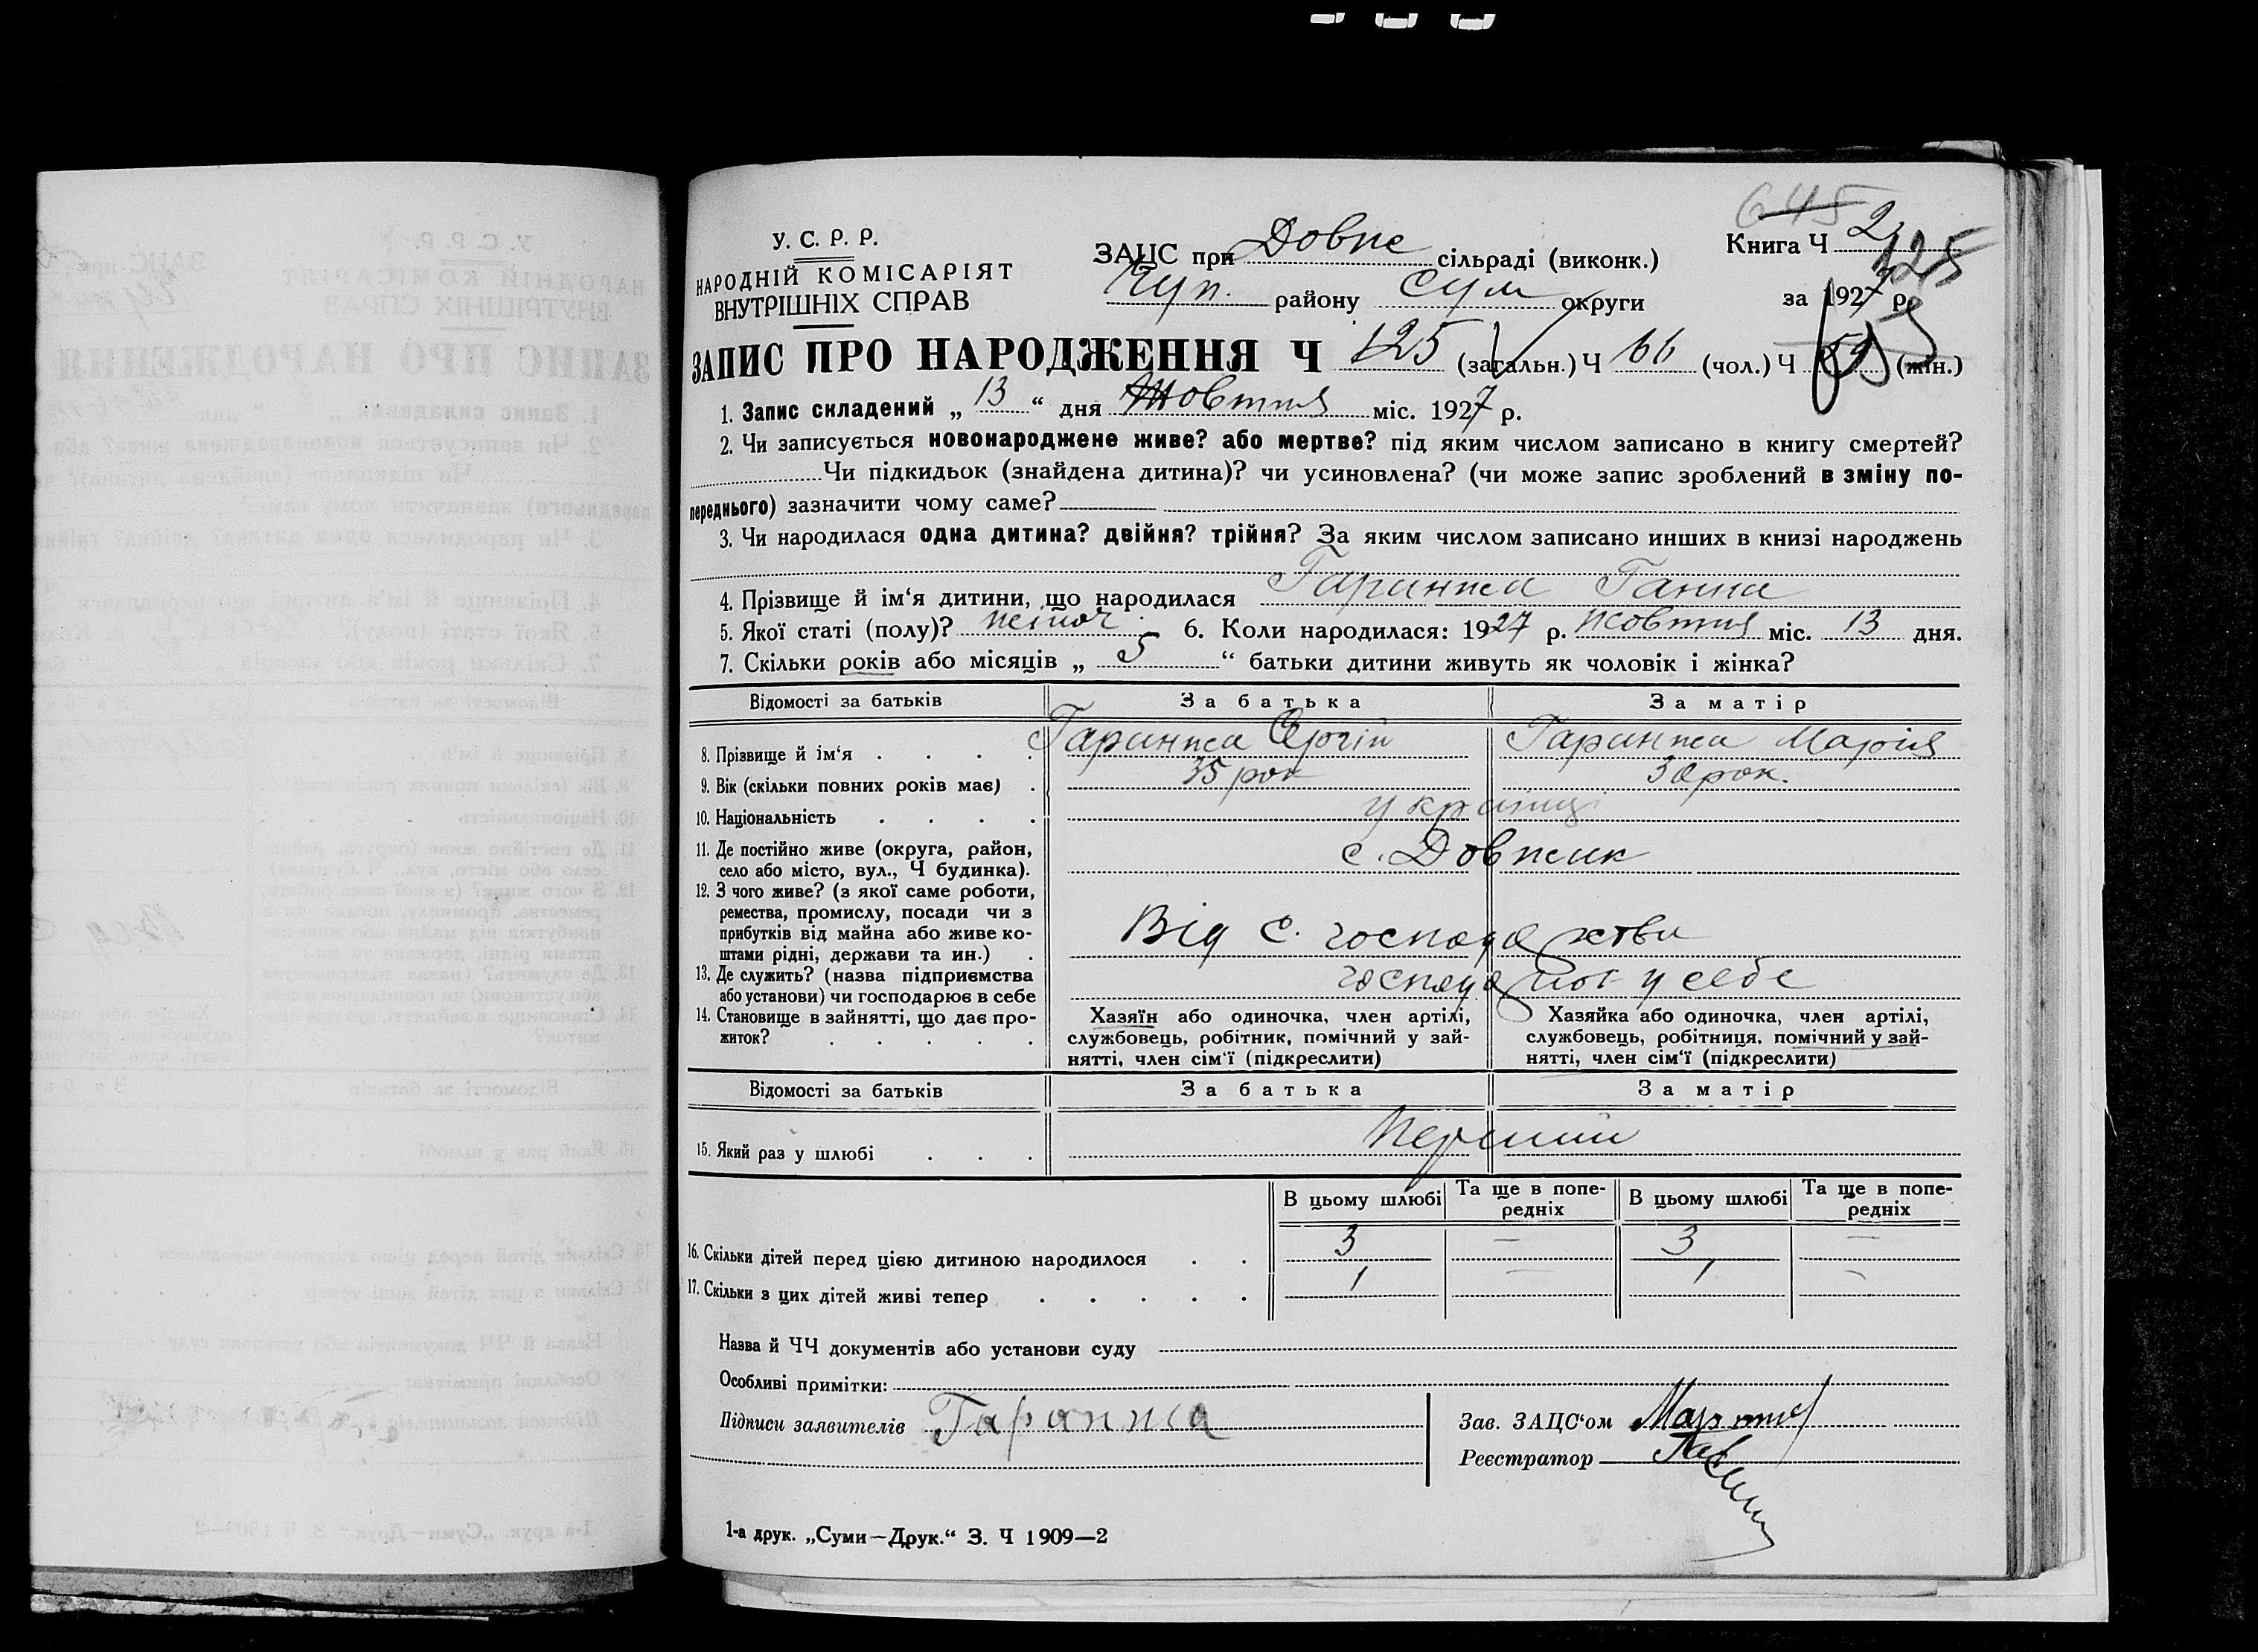 645
У. С. Р. Р.
НАРОДНІЙ КОМІСАРІЯТ
ВНУТРІШНІХ СПРАВ
ЗАЦС при Довж сільраді (виконк.)
Чуп. району Сум округи
Книга Ч 2
125
за 1927 р.
ЗАПИС ПРО НАРОДЖЕННЯ Ч 125 (загальн.) Ч 66 (чол.) Ч 59 (жін.)
1. Запис складений „ 13 “ дня Жовтня міс. 1927 р.
2. Чи записується новонароджене живе? або мертве? під яким числом записано в книгу смертей?
Чи підкидьок (знайдена дитина)? чи усиновлена? (чи може запис зроблений в зміну по-
переднього) зазначити чому саме?
3. Чи народилася одна дитина? двійня? трійня? За яким числом записано инших в книзі народжень
4. Прізвище й ім‘я дитини, що народилася Гаранжа Ганна
5. Якої статі (полу)? жіноч. 6. Коли народилася: 1927 р. жовтня міс. 13 дня.
7. Скільки років або місяців „ 5 “ батьки дитини живуть як чоловік і жінка?
Відомості за батьків За батька За матір
8. Прізвище й ім‘я . . . . Гаранжа Сергій Гаранжа Марія
9. Вік (скільки повних років має) . 35 рок 30 рок.
10. Національність . . . . українці
11. Де постійно живе (округа, район,
село або місто, вул., Ч будинка). с. Довжик
12. З чого живе? (з якої саме роботи,
ремества, промислу, посади чи з
прибутків від майна або живе ко-
штами рідні, держави та ин.) . Від с. господарства
13. Де служить? (назва підприємства
або установи) чи господарює в себе у себе
14. Становище в зайнятті, що дає про-
житок? . . . . .
Хазяїн або одиночка, член артілі,
службовець, робітник, помічний у зай-
нятті, член сім‘ї (підкреслити)
Хазяйка або одиночка, член артілі,
службовець, робітниця, помічний у зай-
нятті, член сім‘ї (підкреслити)
Відомості за батьків За батька За матір
15. Який раз у шлюбі . . . Перший
В цьому шлюбі Та ще в попе-редніх В цьому шлюбі Та ще в попе-редніх
16. Скільки дітей перед цією дитиною народилося . . 3 — 3 —
17. Скільки з цих дітей живі тепер . . . . . 1 — 1 —
Назва й ЧЧ документів або установи суду
Особливі примітки:
Підписи заявителів Гаранжа
Зав. ЗАЦС‘ом
Реєстратор
1-а друк. „Суми—Друк.“ З. Ч 1909—2